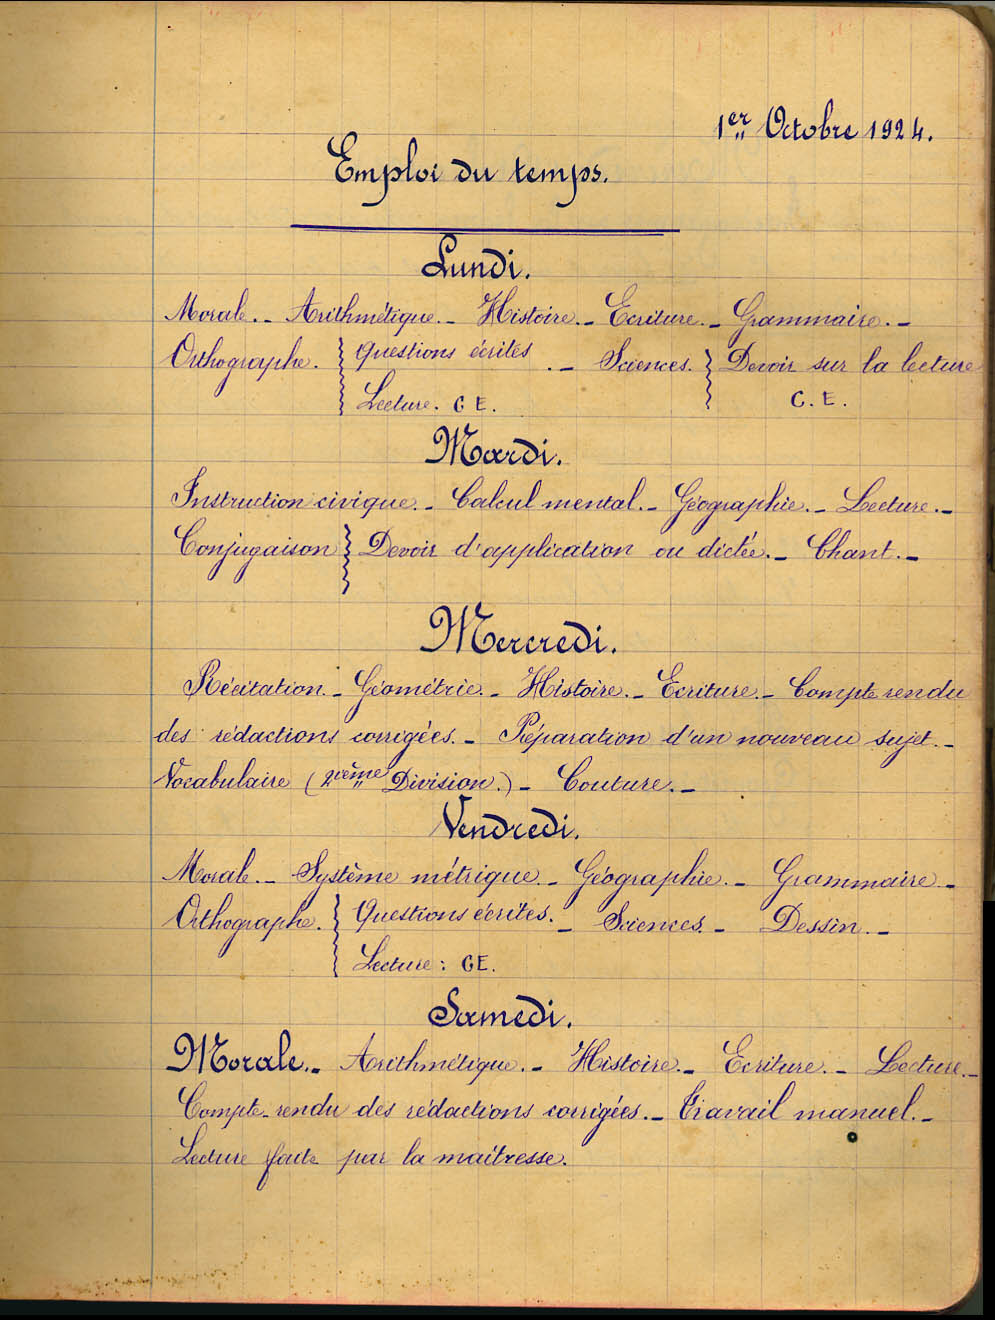 1er Octobre 1924.
Emploi du temps.
Lundi.
Morale. – Arithmétique. – Histoire. – Ecriture. – Grammaire. –
Orthographe. Questions écrites . – Sciences. Devoir sur la lecture
Lecture. C E. C. E.
Mardi.
Instruction civique. – Calcul mental. – Géographie. – Lecture. –
Conjugaison Devoir d'application ou dictée. – Chant. –
Mercredi.
Récitation. – Géométrie. – Histoire. – Ecriture. – Compte rendu
des rédactions corrigées. – Préparation d'un nouveau sujet. –
Vocabulaire (2ième Division.) – Couture. –
Vendredi.
Morale. – Système métrique. – Géographie. – Grammaire –
Orthographe. Questions écrites. – Sciences. – Dessin. –
Lecture : CE.
Samedi.
Morale. – Arithmétique. – Histoire. – Ecriture. – Lecture. –
Compte-rendu des rédactions corrigées. – Travail manuel. –
Lecture faite par la maîtresse.